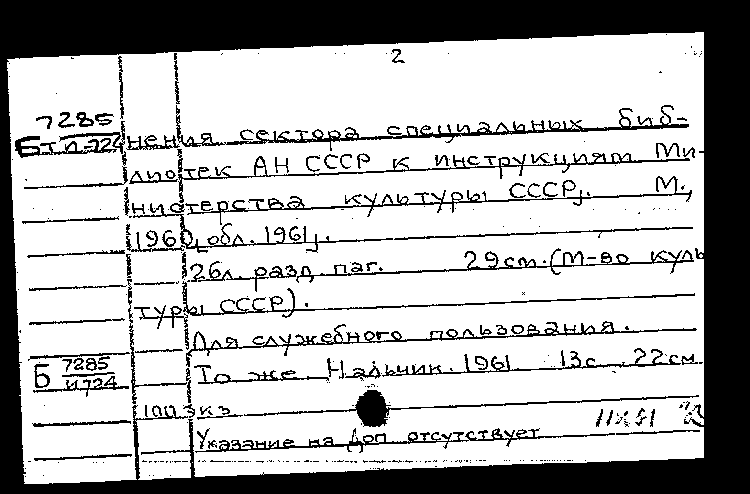 2
7285
Бт И-724 нения сектора специальных биб-
лиотек АН СССР к инструкциям Ми-
нистерства культуры СССР]. М.,
1960, [обл. 1961].
26л. разд. паг. 29см. (М-во куль
туры СССР).
Для служебного пользования.
Б 7285
И724 То же. Нальчик. 1961. 13с. 22см
100 экз
Указание на Доп отсутствует